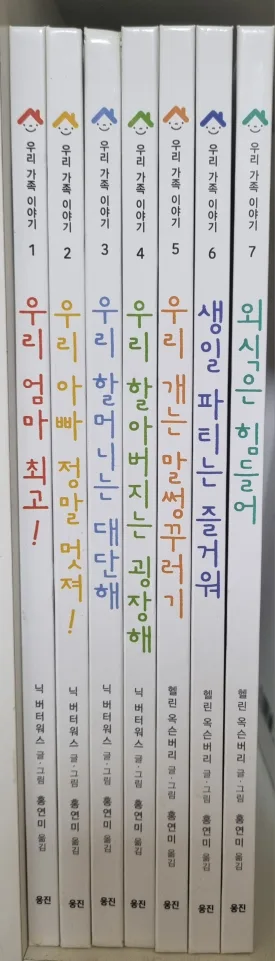 우리 가족 이야기
1
우리 엄마 최고!
닉 버터워스 글·그림 홍연미 옮김
웅진
우리 가족 이야기
2
우리 아빠 정말 멋져!
닉 버터워스 글·그림 홍연미 옮김
웅진
우리 가족 이야기
3
우리 할머니는 대단해
닉 버터워스 글·그림 홍연미 옮김
웅진
우리 가족 이야기
4
우리 할아버지는 굉장해
닉 버터워스 글·그림 홍연미 옮김
웅진
우리 가족 이야기
5
우리 개는 말썽꾸러기
헬린 옥슨버리 글·그림 홍연미 옮김
웅진
우리 가족 이야기
6
생일 파티는 즐거워
헬린 옥슨버리 글·그림 홍연미 옮김
웅진
우리 가족 이야기
7
외식은 힘들어
헬린 옥슨버리 글·그림 홍연미 옮김
웅진